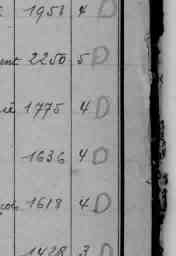 1958 4 D
ent 2250 5 D
1775 4 D
1636 4 D
1618 4 D
1428 3 D